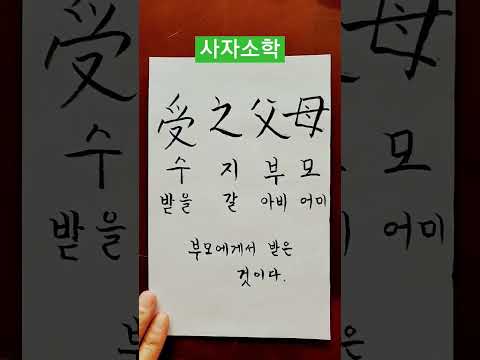 사자소학
受之父母
수 지 부 모
받을 갈 아비 어미
부모에게서 받은
것이다.